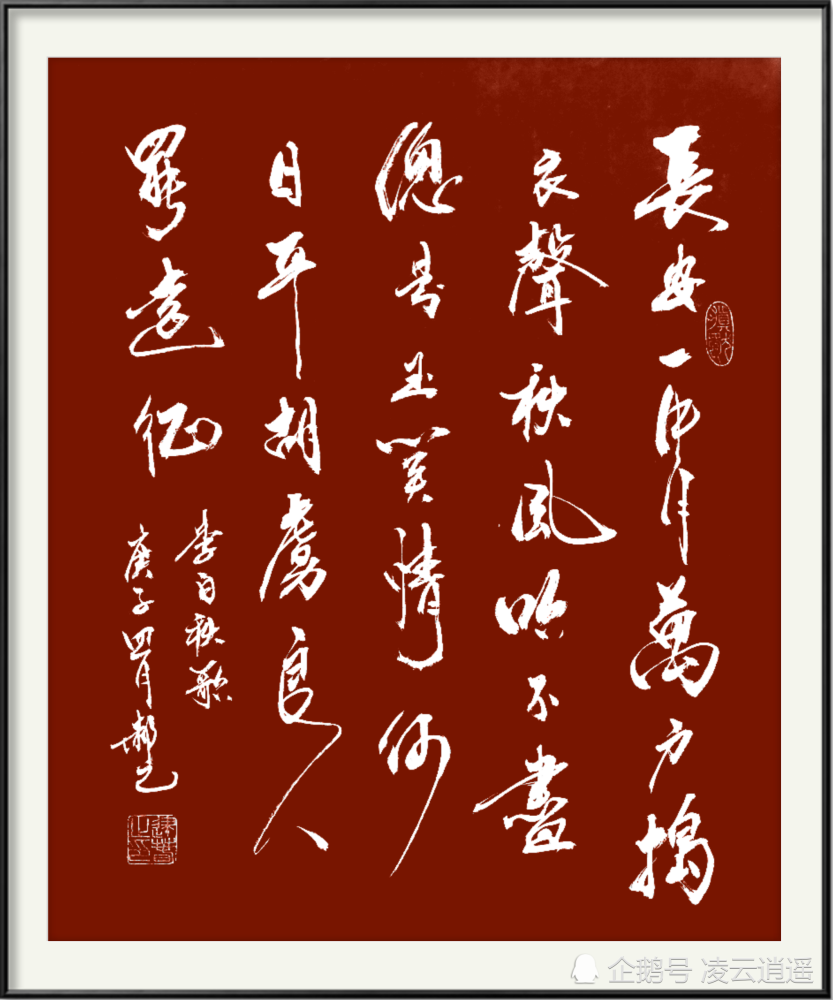 長安一片月萬户搗
衣聲秋風吹不盡
總是玉關情何
日平胡虜良人
罷遠征
李白秋歌
庚子四月
企鹅号 凌云逍遥